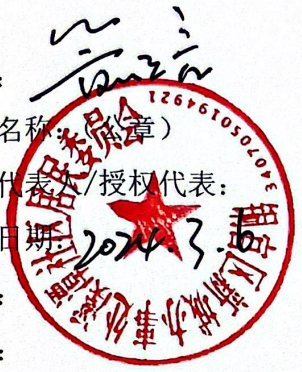 :
名称：（公章）
代表人/授权代表：
日期：2024.3.6
:
:
铜官区新城办事处
社区居民委员会
3407050194921